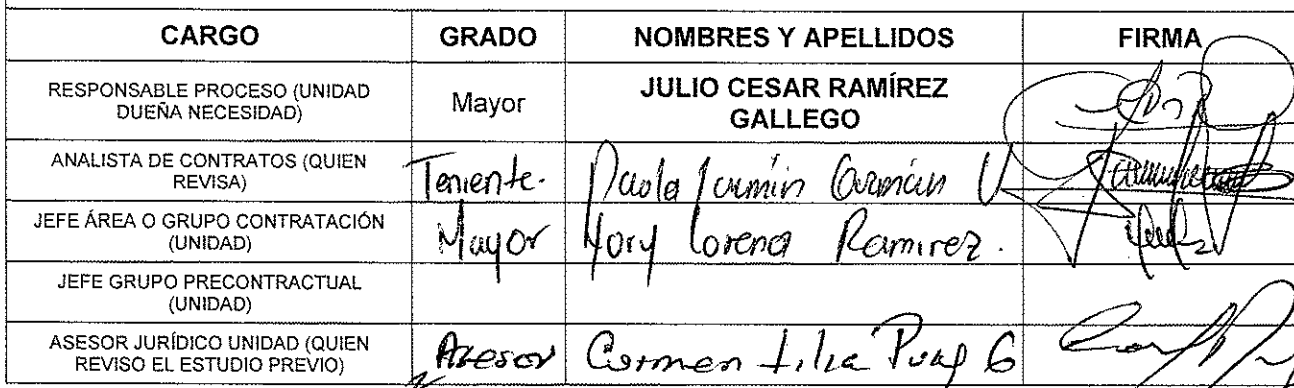 CARGO GRADO NOMBRES Y APELLIDOS FIRMA
RESPONSABLE PROCESO (UNIDAD
DUEÑA NECESIDAD)
Mayor
JULIO CESAR RAMÍREZ
GALLEGO
ANALISTA DE CONTRATOS (QUIEN
REVISA)
Teniente. Paola
JEFE ÁREA O GRUPO CONTRATACIÓN
(UNIDAD)
Mayor Yory Lorena Ramirez.
JEFE GRUPO PRECONTRACTUAL
(UNIDAD)
ASESOR JURÍDICO UNIDAD (QUIEN
REVISO EL ESTUDIO PREVIO)
Asesor Carmen